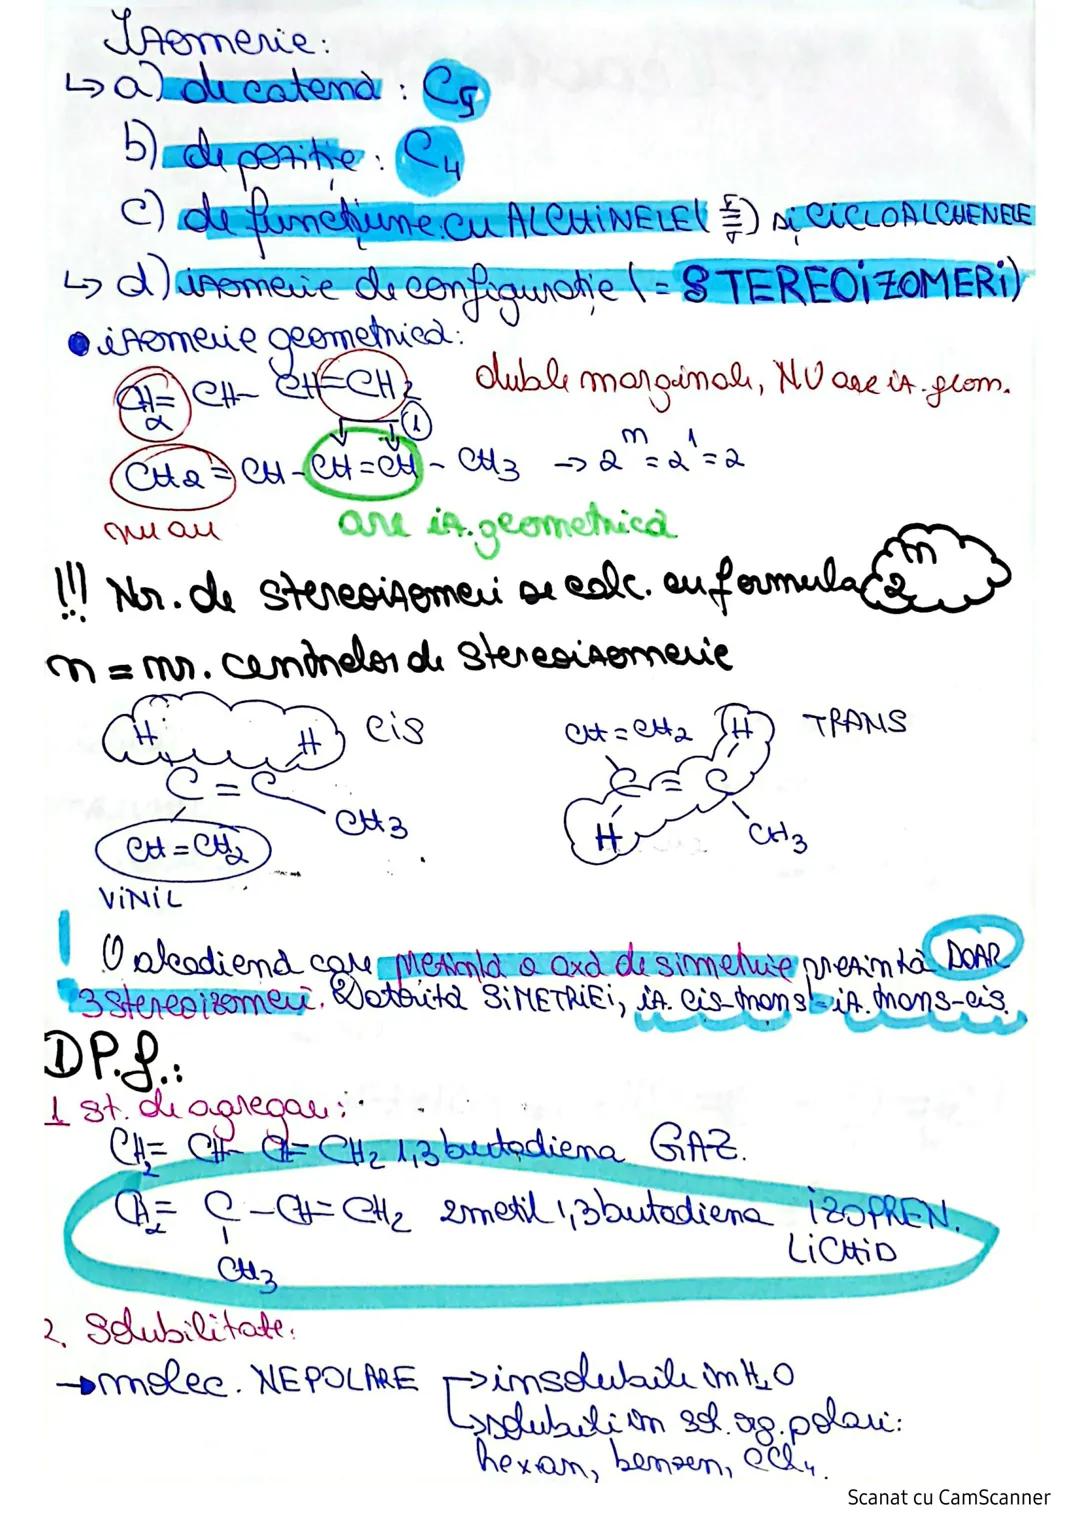 Izomerie:
↳ a) de catenă : C5
b) de poziție : C4
c) de funcțiune: cu ALCHINELE (≡) și CICLOALCHENELE
↳ d) izomerie de configurație (= STEREOIZOMERI)
• izomerie geometrică:
CH2= CH- CH=CH2 duble marginale, NU are iz. geom.
①
CH2 = CH - CH = CH - CH3 → 2^n = 2^1 = 2
nu au are iz. geometrică
!!! Nr. de stereoizomeri se calc. cu formula 2^n
n = nr. centrelor de stereoizomerie
H H cis CH = CH2 H TRANS
C = C C = C
CH = CH2 CH3 H CH3
VINIL
! O alcadienă care prezintă o axă de simetrie prezintă DOAR
3 stereoizomeri. Datorită SIMETRIEI, iz. cis-trans = iz. trans-cis.
D P.f.:
1 st. de agregare:
CH2= CH- CH= CH2 1,3 butadiena GAZ.
CH2= C - CH= CH2 2metil 1,3butadiena IZOPREN.
CH3 LICHID
2. Solubilitate:
→ molec. NEPOLARE → insolubile în H2O
↳ solubili în sol. org. polari:
hexan, benzen, CCl4.
Scanat cu CamScanner